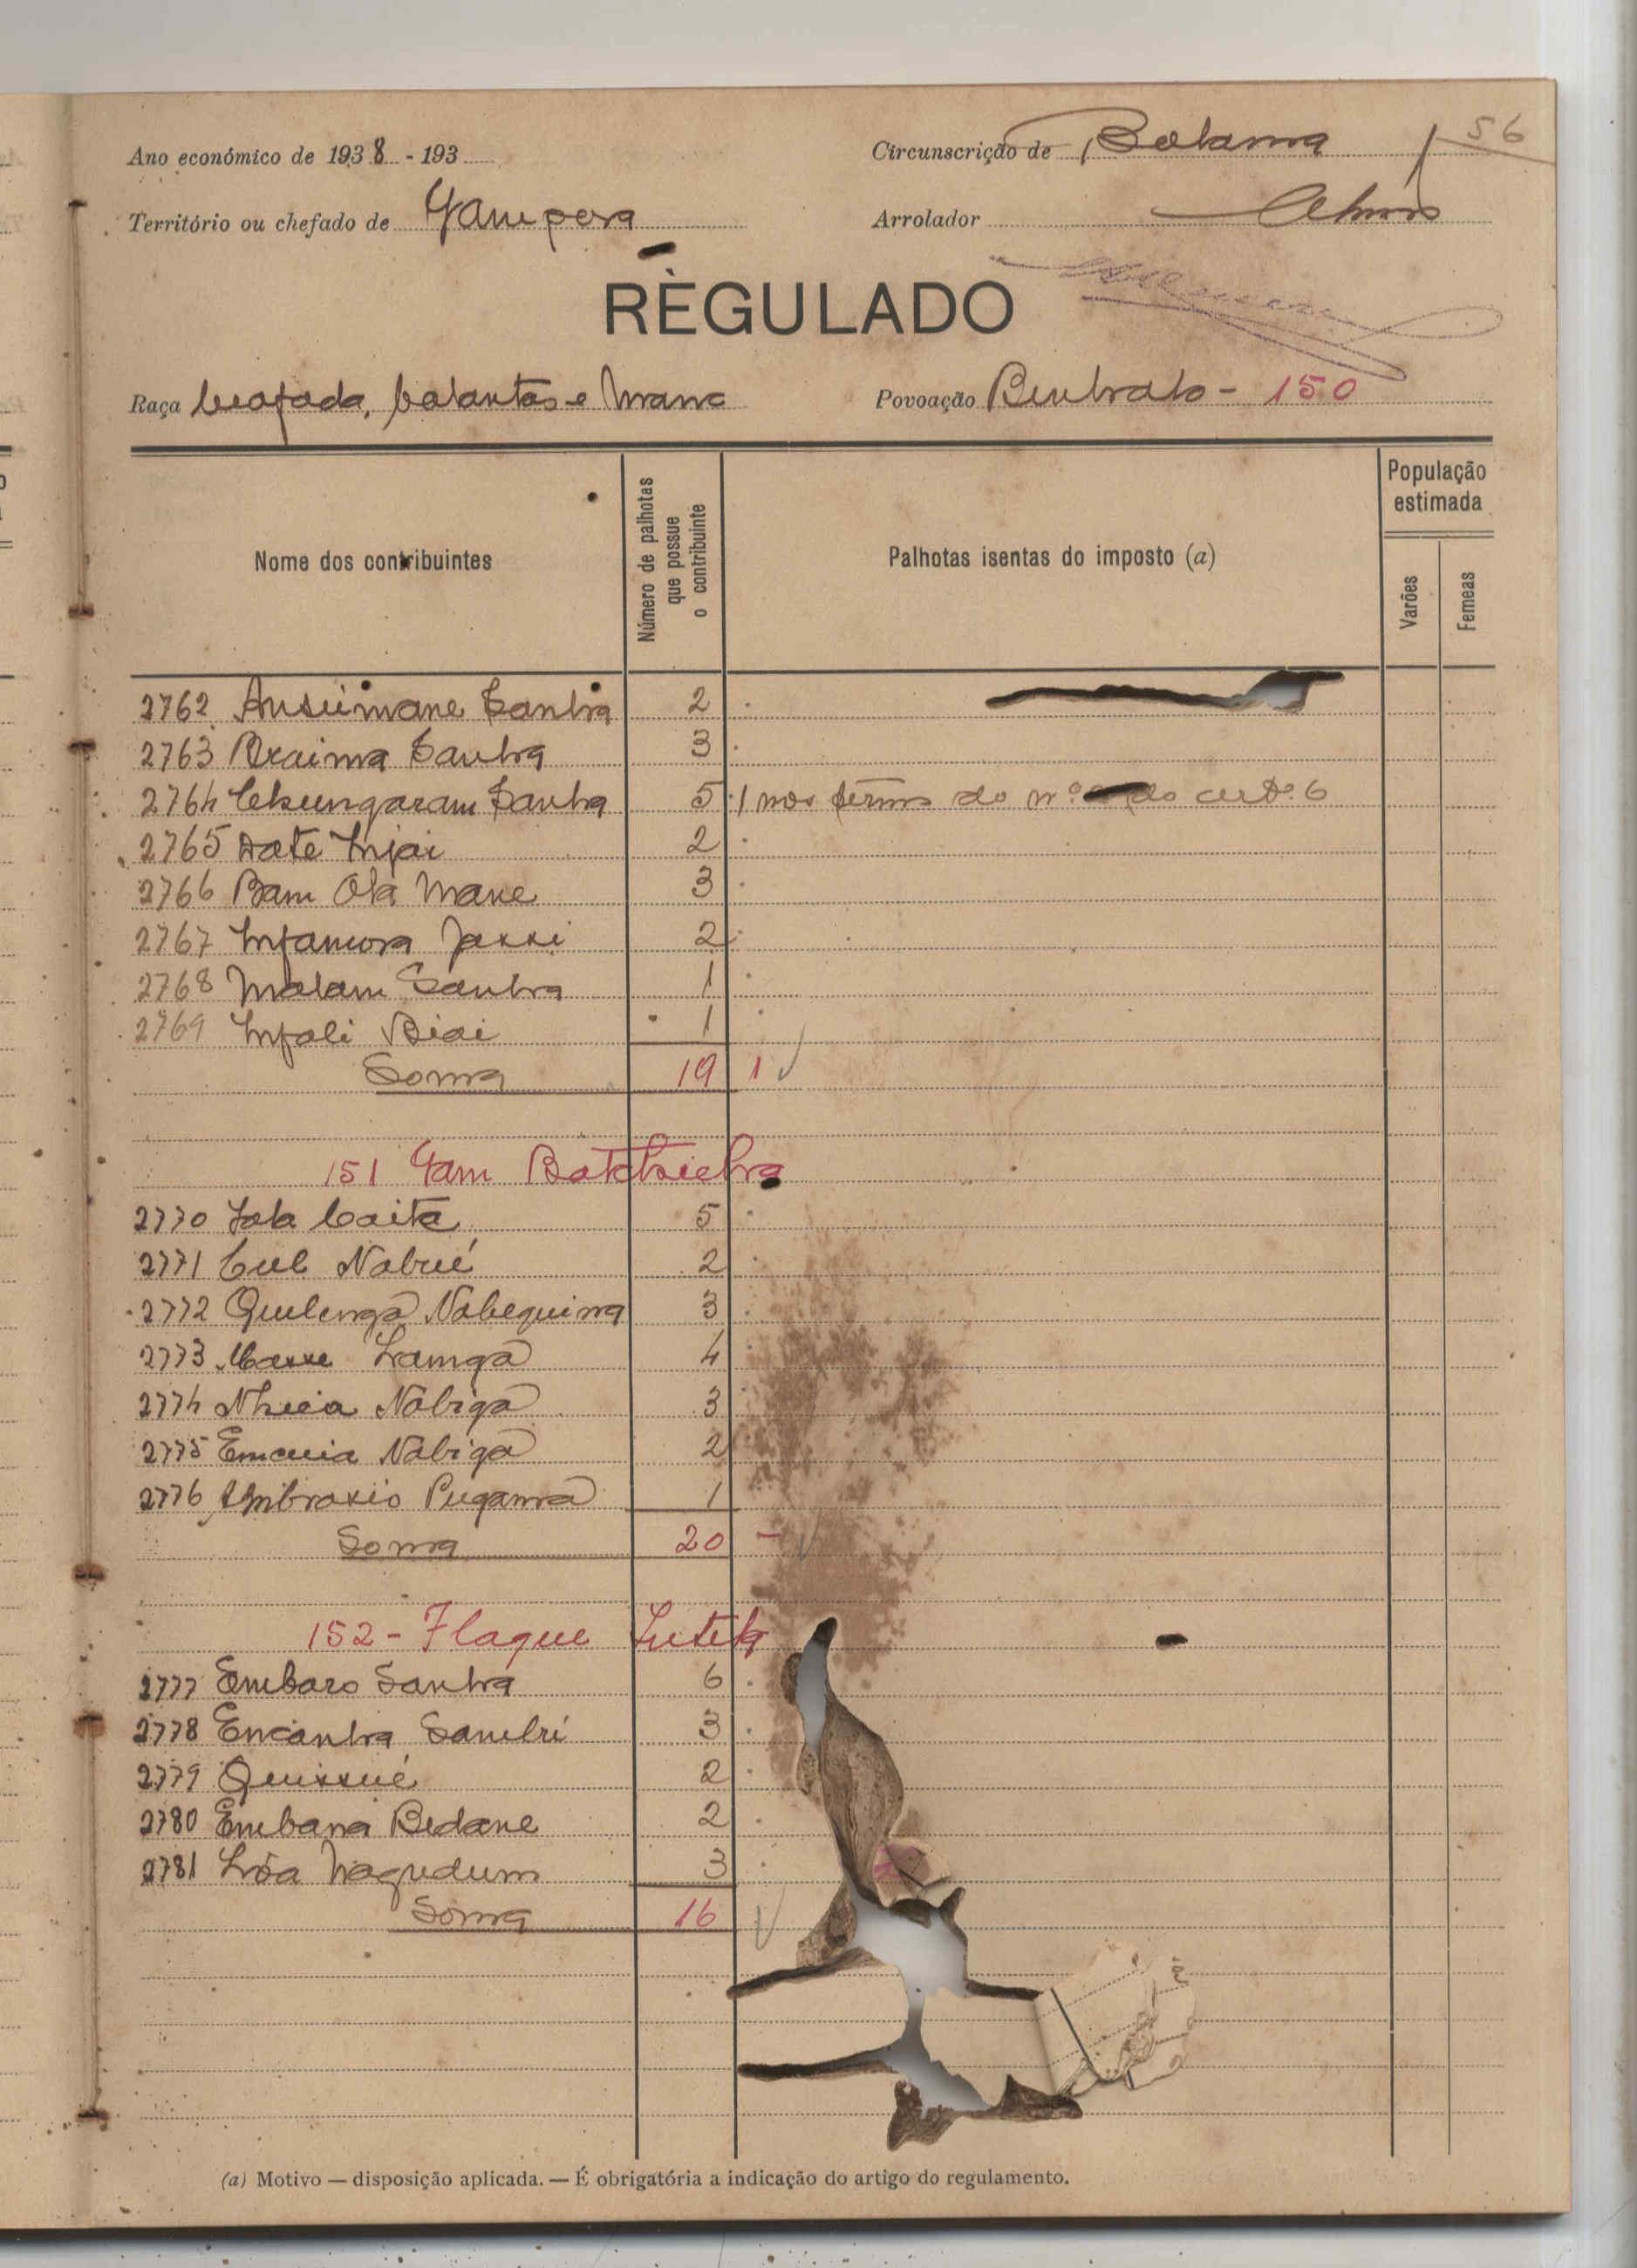 56
Ano económico de 1938 - 193
Circunscrição de Bolama
Território ou chefado de Gampara
Arrolador
REGULADO
Raça beafada, balantas e mane
Povoação Bintrato - 150
Nome dos contribuintes
Número de palhotas que possue o contribuinte
Palhotas isentas do imposto (a)
População estimada
Varões
Femeas
2762 Ansumane Sanha 2
2763 Braima Sanha 3
2764 Chungaram Sanha 5 1 nos termos do nº do artº. 6
2765 Date Injai 2
2766 Bam Ola Mane 3
2767 Infamora Jassi 2
2768 Malam Sanha 1
2769 Infali Biai 1
Soma 19 1
151 Gam Batchicha
2770 Iala Caita 5
2771 Cul Nabué 2
2772 Quilenga Nabequima 3
2773 Masse Tramga 4
2774 Nhica Nabiga 3
2775 Emcuia Nabiga 2
2776 Ambrosio Pugama 1
Soma 20 -
152 - Flaque
2777 Embaro Sanha 6
2778 Encanha Sambú 3
2779 Quissué 2
2780 Embana Bedane 2
2781 Lóa Nagudum 3
Soma 16
(a) Motivo — disposição aplicada. — É obrigatória a indicação do artigo do regulamento.